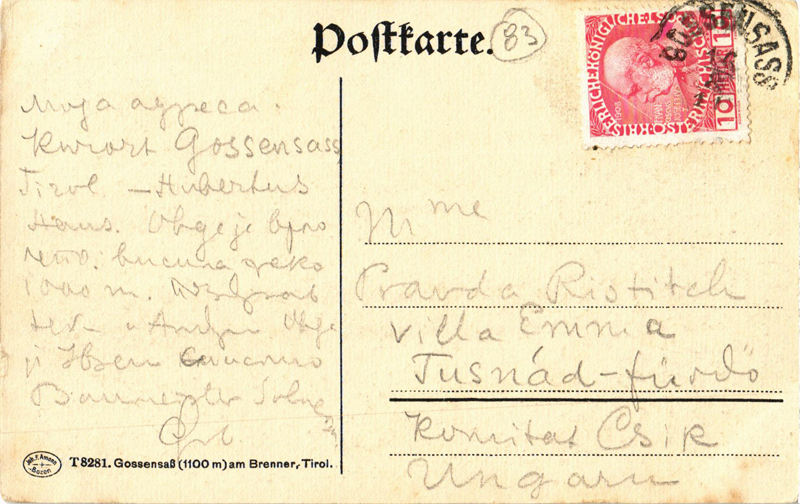 Postkarte.
83
GOSSENSASS
KAISERLICHE KÖNIGLICHE
ÖSTERREICHISCHE
10
1908
Моја адреса.
Kurort Gossensass
Tirol – Hubertus
Haus. Овде је врло
лепо. висина преко
1000 m.
и Овде
је Ibsen
Baumeister Solness
M me
Pravda Ristitch
Villa Emma
Tusnád-fürdő
Komitat Csik
Ungarn
Joh. F. Amonn
Bozen
T 8281. Gossensaß (1100 m) am Brenner, Tirol.